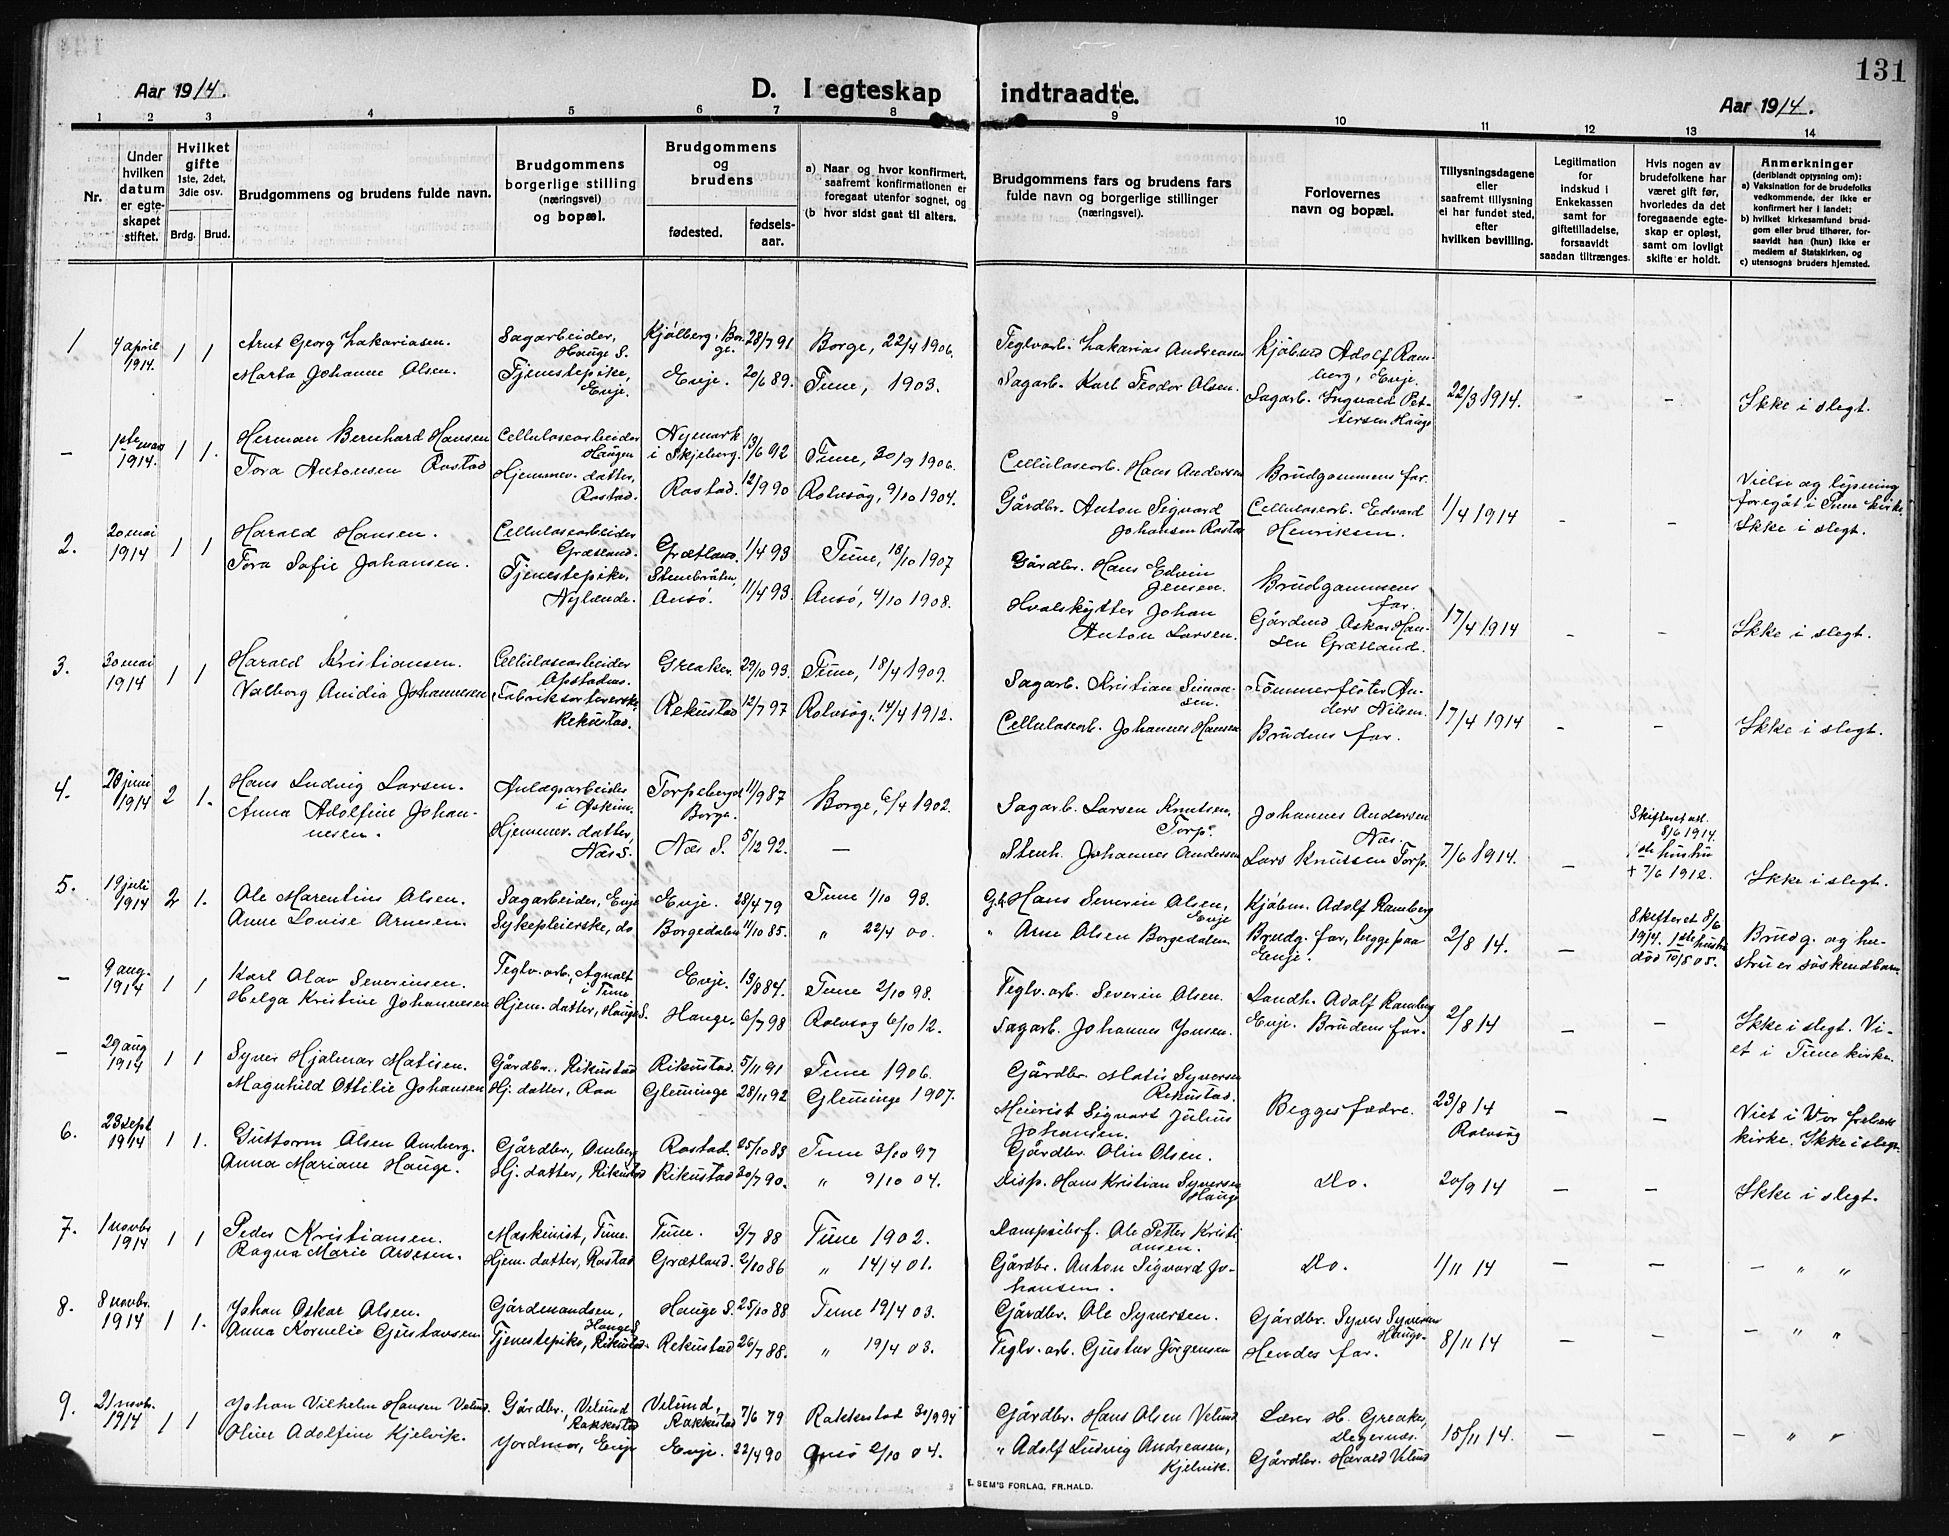 131
Aar 1914.
D. I egteskap indtraadte.
Aar 1914.
1 2 3 4 5 6 7 8 9 10 11 12 13 14
Nr.
Under hvilken datum er egteskapet stiftet.
Hvilket gifte 1ste, 2det, 3die osv.
Brdg. Brud.
Brudgommens og brudens fulde navn.
Brudgommens borgerlige stilling (næringsvei) og bopæl.
Brudgommens og brudens
fødested.
fødsels-aar.
a) Naar og hvor konfirmert, saafremt konfirmationen er foregaat utenfor sognet, og
(b hvor sidst gaat til alters.
Brudgommens fars og brudens fars fulde navn og borgerlige stillinger (næringsvei).
Forlovernes navn og bopæl.
Tillysningsdagene eller saafremt tillysning ei har fundet sted, efter hvilken bevilling.
Legitimation for indskud i Enkekassen samt for giftetilladelse, forsaavidt saadan tiltrænges.
Hvis nogen av brudefolkene har været gift før, hvorledes da det foregaaende egteskap er opløst, samt om lovligt skifte er holdt.
Anmerkninger (deriblandt oplysning om):
a) Vaksination for de brudefolks vedkommende, der ikke er konfirmert her i landet;
b) hvilket kirkesamfund brudgom eller brud tilhører, forsaavidt han (hun) ikke er medlem af Statskirken, og
c) utensogns bruders hjemsted.
1 4 april 1914. 1 1 Arnt Georg Zakariasen. Sagarbeider, Hauge S. Kjølberg i Borge. 28/7 91 Borge, 22/4 1906. Teglvarb. Zakarias Andreasen Kjøbmd Adolf Ramberg, Evje.
Marta Johanne Olsen. Tjenestepike, Evje. Evje. 20/6 89. Tune, 1903. Sagarb. Karl Teodor Olsen. Sagarb. Ingvald Pettersen Hauge 22/3 1914. – – Ikke i slegt.
– 1ste mai 1914. 1 1. Herman Bernhard Hansen Cellulosearbeider Haugen Nymark i Skjeberg. 13/6 92 Tune, 30/9 1906. Cellulosearb. Hans Andersen Brudgommens far.
Tora Antonsen Rostad Hjemmev. datter, Rostad. Rostad. 12/9 90 Rolvsøg, 9/10 1904. Gårdbr. Anton Sigvard Johansen Rostad Cellulosearb. Edvard Henriksen. 1/4 1914 – – Vielse og lysning foregåt i Tune kirke. Ikke i slegt.
2. 20 mai 1914 1 1 Harald Hansen. Cellulosearbeider Grætland. Grætland. 1/4 93 Tune, 18/10 1907 Gårdbr. Hans Edvin Jensen. Brudgommens far.
Tora Sofie Johansen. Tjenestepike, Nylende. Stenbråten, Onsø. 11/4 93. Onsø, 4/10 1908. Hvalskytter Johan Anton Larsen. Gårdmd Oskar Hansen Grætland. 17/4 1914 – – Ikke i slegt.
3. 30 mai 1914 1 1 Harald Kristiansen. Cellulosearbeider Opstadms. Greaker. 29/10 93. Tune, 18/4 1909. Sagarb. Kristian Simonsen. Tømmerfløter Anders Nilsen.
Valborg Anidia Johannesen Fabriksarbeiderske, Rekustad. Rekustad 12/7 97 Rolvsøg, 14/4 1912. Cellulosearb. Johannes Hansen Brudens far. 17/4 1914 – – Ikke i slegt.
4. 28 juni 1914 2 1. Hans Ludvig Larsen. Anlægsarbeider i Askim. Torpeberget Borge. 11/9 87 Borge, 6/4 1902. Sagarb. Larsen Knutsen, Torp. Johannes Andersen Næs.
Anna Adolfine Johannesen. Hjemmev. datter, Næs S. Næs S. 5/12 92. – Stenh. Johannes Andersen Lars Knutsen Torp. 7/6 1914. – Skifteret att. 8/6 1914. 1ste hustru + 7/6 1912. Ikke i slegt.
5. 19 juli 1914 2 1. Ole Marentius Olsen. Sagarbeider, Evje Evje. 28/4 79 Tune 1/10 93. G.b. Hans Severin Olsen, Evje Kjøbm. Adolf Ramberg
Anne Lovise Arnesen. Sykepleierske, do Borgedalen 11/10 85. „ 22/4 00. „ Arne Olsen Borgedalen Brudg. far, begge paa Evje. 2/8 14. – Skifteret 8/6 1914. 1ste hustru død 10/5 05. Brudg. og hustru er søskendbarn
– 9 aug. 1914 1 1 Karl Olav Severinsen. Teglv. arb, Agnalt i Tune Evje. 13/8 84. Tune 2/10 98. Teglv. arb. Severin Olsen. Landh. Adolf Ramberg
Helga Kristine Johannesen Hjem. datter, Hauge S. Hauge. 6/7 98 Rolvsøg 6/10 12. Sagarb. Johannes Jonsen. Evje. Brudens far. 2/8 14 – – Ikke i slegt. Viet i Tune kirke.
– 29 aug 1914 1 1 Syver Hjalmar Matisen. Gårdbr. Rikustad Rikustad. 5/11 91 Tune 1906. Gårdbr. Matis Syversen Rekustad.
Magnhild Ottilie Johansen Hj. datter, Raa Glemminge 28/11 92 Glemminge 1907. Meierist Sigvart Julius Johansen. Begges fædre. 23/8 14 Rolvsøg – – Viet i Vor frelsers kirke. Ikke i slegt.
6. 23 sept 1914 1 1. Guttorm Olsen Amberg. Gårdbr, Omberg Rostad. 25/10 83 Tune 3/10 97 Gårdbr. Olin Olsen.
Anna Mariane Hauge. Hj. datter, Rikustad Rikustad 30/7 90. „ 9/10 04. Disp. Hans Kristian Syversen Hauge Do. 20/9 14 – – Ikke i slegt.
7. 1 novbr 1914 1 1 Peder Kristiansen. Maskinist, Tune. Tune. 3/7 88 Tune 1902. Dampsibsf. Ole Petter Kristiansen.
Ragna Marie Arvesen. Hjem. datter, Rostad Grætland. 2/10 86 „ 14/4 01. Gårdbr. Anton Sigvard Johansen. Do. 1/11 14 – – – „ „
8. 8 novbr. 1914 1 1. Johan Oskar Olsen. Gårdmandsøn, Hauge S Hauge S. 25/10 88 Tune 19/4 03. Gårdbr. Ole Syversen. Gårdbr. Syver Syversen Hauge.
Anna Kornelie Gustavsen Tjenestepike, Rikustad. Rekustad 26/7 88. „ 19/4 03. Teglv. arb. Gustav Jørgensen Hendes far. 8/11 14 – – – „ „
9. 21 novbr. 1914 1 1 Johan Vilhelm Hansen Velund. Gårdbr, Velund Rakkestad Velund, Rakkestad 7/6 79 Rakkestad 30/9 94 Gårdbr. Hans Olsen Velund Lærer H. Greaker, Degernes.
Oline Adolfine Kjelvik. Jordmor, Evje Evje. 22/4 90 Onsø 2/10 04. „ Adolf Ludvig Andreasen, Kjelvik. Gårdbr. Harald Velund 15/11 14. – – – „ „
E. SEM'S FORLAG, FR.HALD.